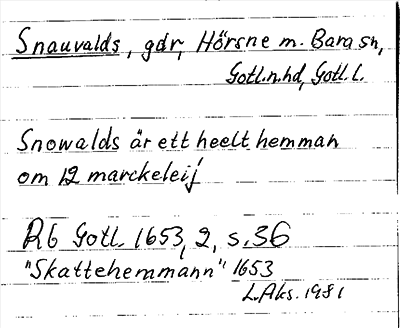 Snauvalds, gdr, Hörsne m. Bara sn,
Gotl.n.hd, Gotl. l.
Snowalds är ett heelt hemman
om 12 marckeleij
Rb Gotl. 1653, 2, s. 36
"Skattehemmann" 1653
L.Aks. 1981